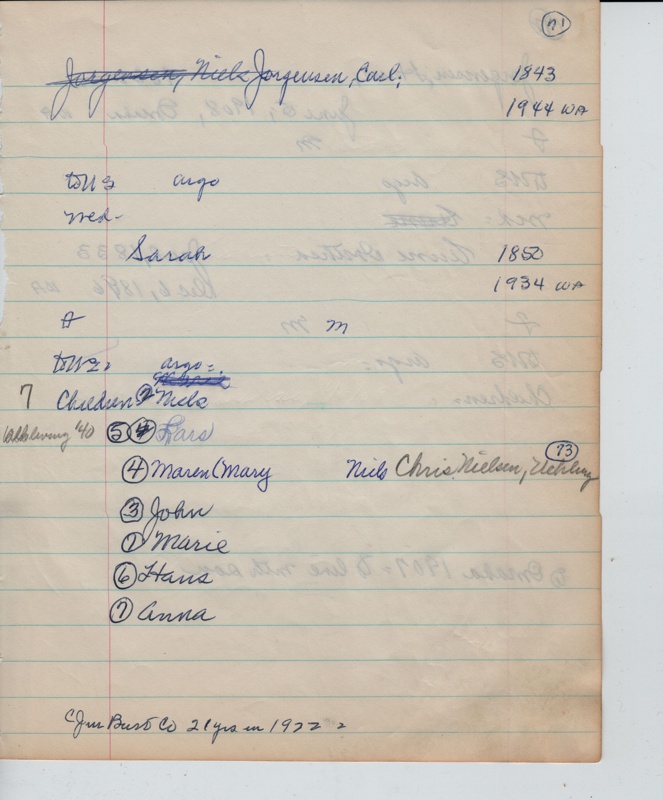 71
Jorgensen, Niels Jorgensen, Carl; 1843
1944 WA
toUS argo
Med-
Sarah 1850
1934 WA
F M
toUS: argo:
7 Children 2 Niels
All living '40 5 4 Lars
4 Maren (Mary Niels Chris Nielsen, Uehling 73
3 John
1 Marie
6 Hans
7 Anna
CJ in Burt Co 21 yrs in 1922